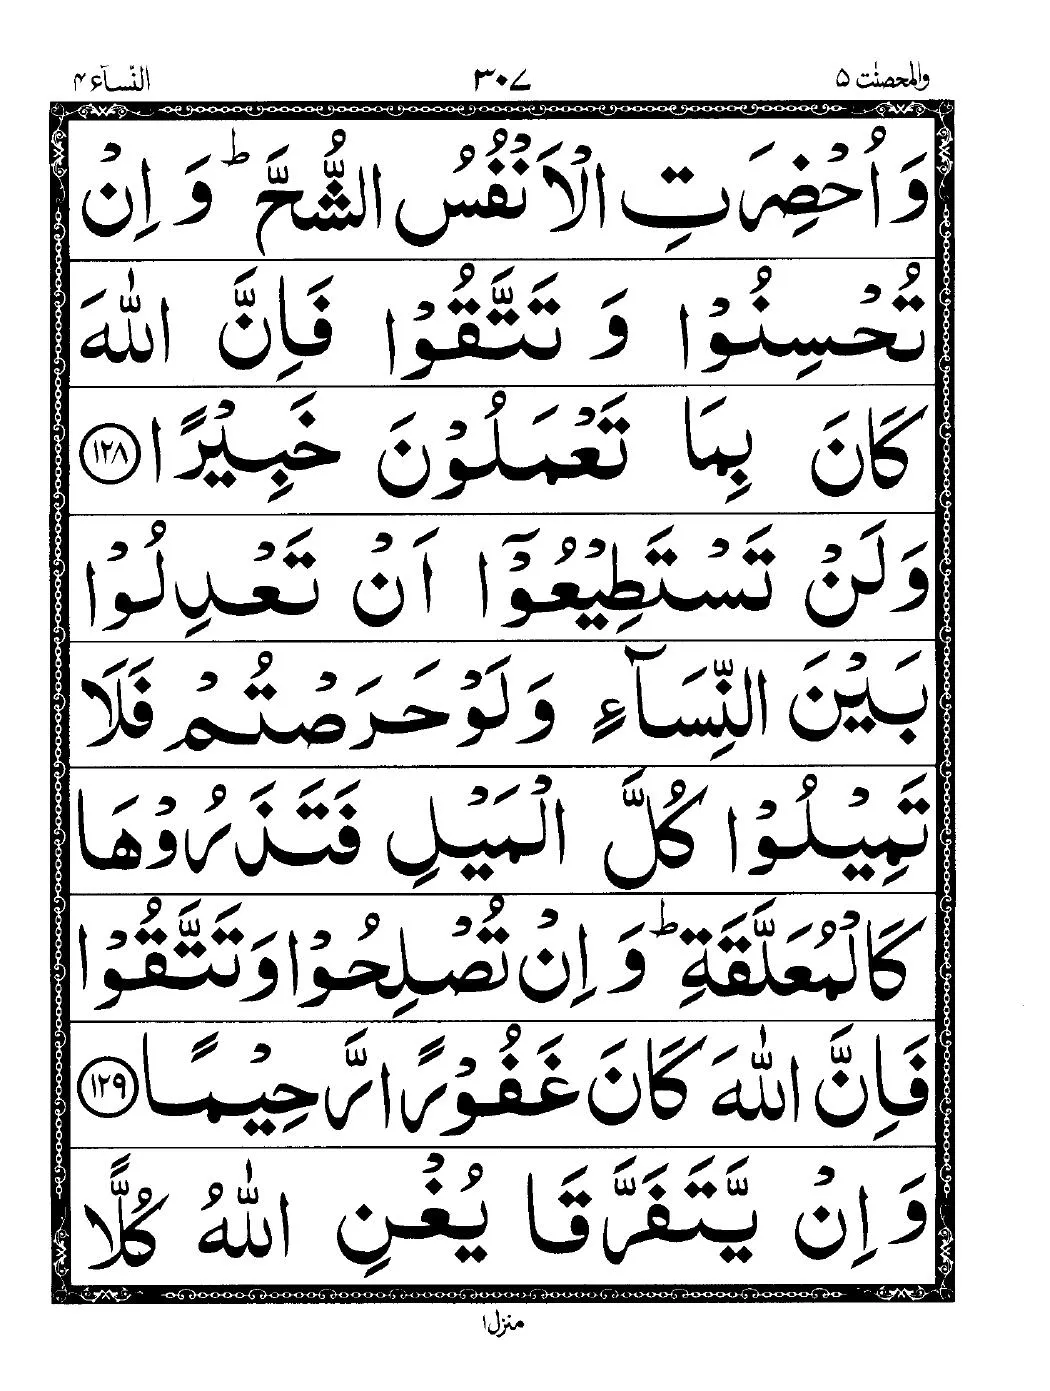 والمحصنٰت ۵ ۳۰۷ النّسآء ۴
وَاُحْضِرَتِ الْاَنْفُسُ الشُّحَّ ؕ وَ اِنْ
تُحْسِنُوْا وَ تَتَّقُوْا فَاِنَّ اللّٰهَ
كَانَ بِمَا تَعْمَلُوْنَ خَبِيْرًا ۱۲۸
وَلَنْ تَسْتَطِيْعُوْۤا اَنْ تَعْدِلُوْا
بَيْنَ النِّسَآءِ وَلَوْ حَرَصْتُمْ فَلَا
تَمِيْلُوْا كُلَّ الْمَيْلِ فَتَذَرُوْهَا
كَالْمُعَلَّقَةِ ؕ وَ اِنْ تُصْلِحُوْا وَتَتَّقُوْا
فَاِنَّ اللّٰهَ كَانَ غَفُوْرًا رَّحِيْمًا ۱۲۹
وَ اِنْ يَّتَفَرَّقَا يُغْنِ اللّٰهُ كُلًّا
منزل ۱